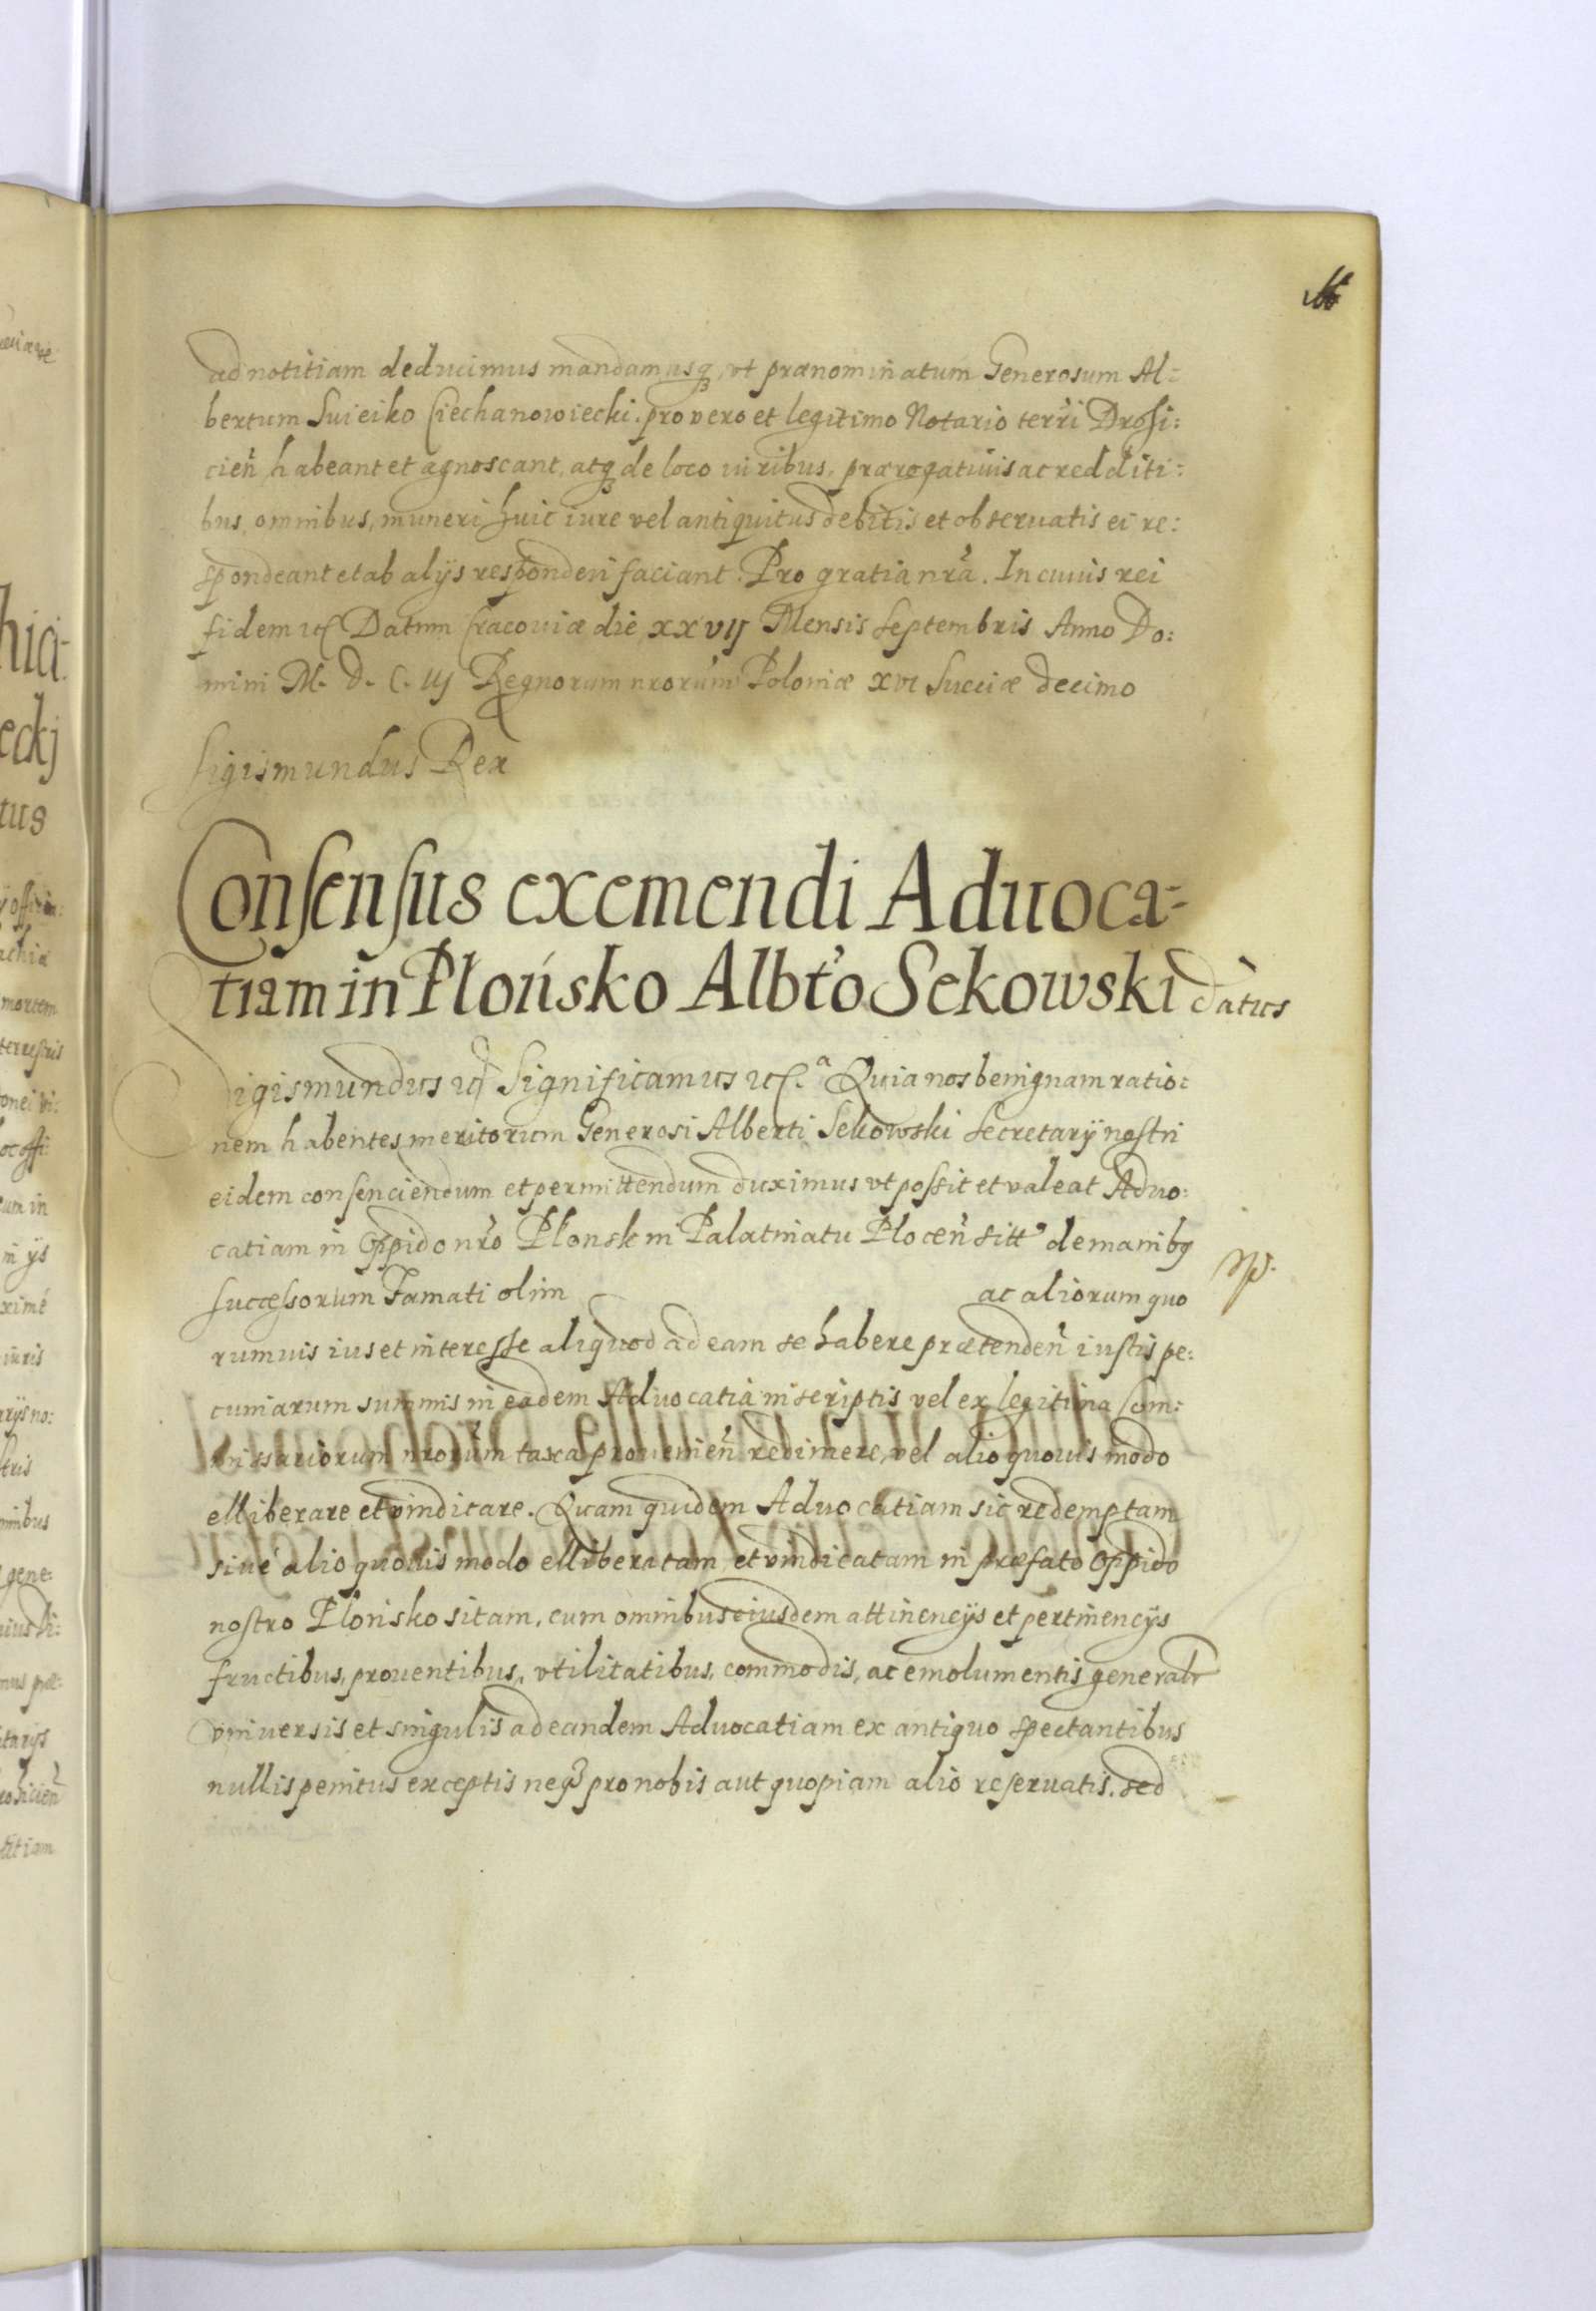 16
ad notitiam deducimus mandamusq₃, vt prænominatum Generosum Al=
bertum Suieiko Ciechanowiecki. pro vero et legitimo Notario terri Drohi:
cien̄ habeant et agnoscant, atq₃ de loco iuribus, prærogatiuis ac redditi:
bus, omnibus, muneri huic iure vel antiquitus debitis et obseruatis ei re:
spondeant et ab alijs responderi faciant. Pro gratia nr̃a. In cuuis rei
fidem etc Datum Cracouiæ die xxvij Mensis Septembris Anno Do:
mini M. D. C. iij Regnorum nrorum Poloniæ xvi Sueciæ decimo
Sigismundus Rex
Consensus exemendi Aduoca-
tiam in Plońsko Albt̓o Sekowski datus
Sigismundus etc Significamus etc.ᵃ Quia nos benignam ratio:
nem habentes meritorum Generosi Alberti Sekowski Secretarij nostri
eidem consenciendum et permittendum duximus vt possit et valeat Aduo:
catiam in Oppido nr̃o Plonsk in Palatinatu Plocen̄ sitt̓ de manibq
successorum Famati olim ac aliorum quo
rumuis ius et interesse aliquod ad eam se habere prætenden̄ iustis pe:
cuniarum summis in eadem Aduocatia inscriptis vel ex legitima Com:
missariorum nrorum taxa prouenien̄ redimere, vel alio quouis modo
elliberare et vindicare. Quam quidem Aduocatiam sic redemptam
siue alio quouis modo elliberatam et vindicatam in præfato Oppido
nostro Plońsko sitam, cum omnibus eiusdem attinencijs et pertinencijs
fructibus, prouentibus, vtilitatibus, commodis, ac emolumentis generalr
vniuersis et singulis ad eandem Aduocatiam ex antiquo spectantibus
nullis penitus exceptis neq₃ pro nobis aut quopiam alio reseruatis. sed